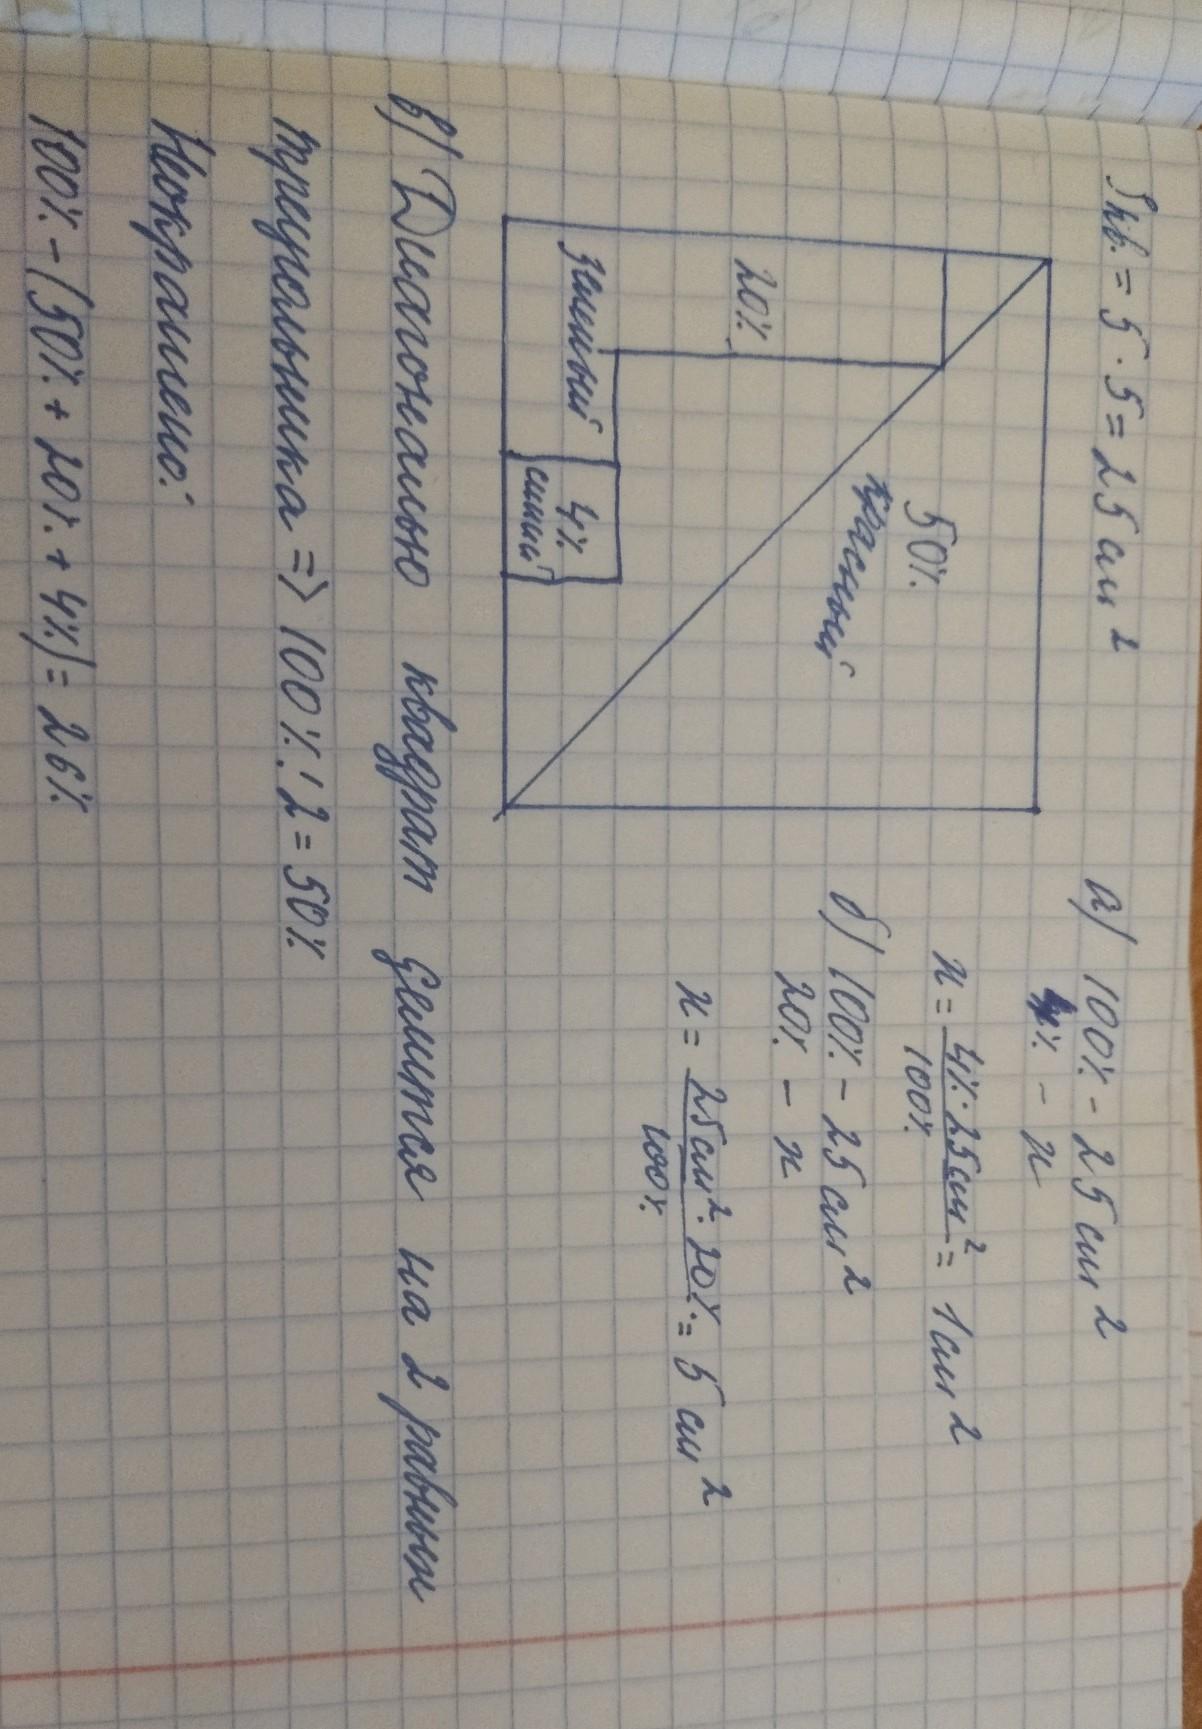 Sкв. = 5 · 5 = 25 см²
50%
красный
20%
зеленый
4%
синий
а) 100% - 25 см²
4% - x
x = 4% · 25 см² / 100% = 1 см²
б) 100% - 25 см²
20% - x
x = 25 см² · 20% / 100% = 5 см²
в) Диагональю квадрат делится на 2 равных
треугольника => 100% : 2 = 50%
Нокрашено:
100% - (50% + 20% + 4%) = 26%